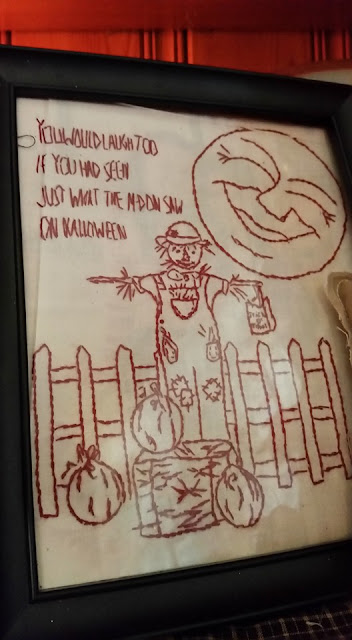 YOU WOULD LAUGH TOO
IF YOU HAD SEEN
JUST WHAT THE MOON SAW
ON HALLOWEEN